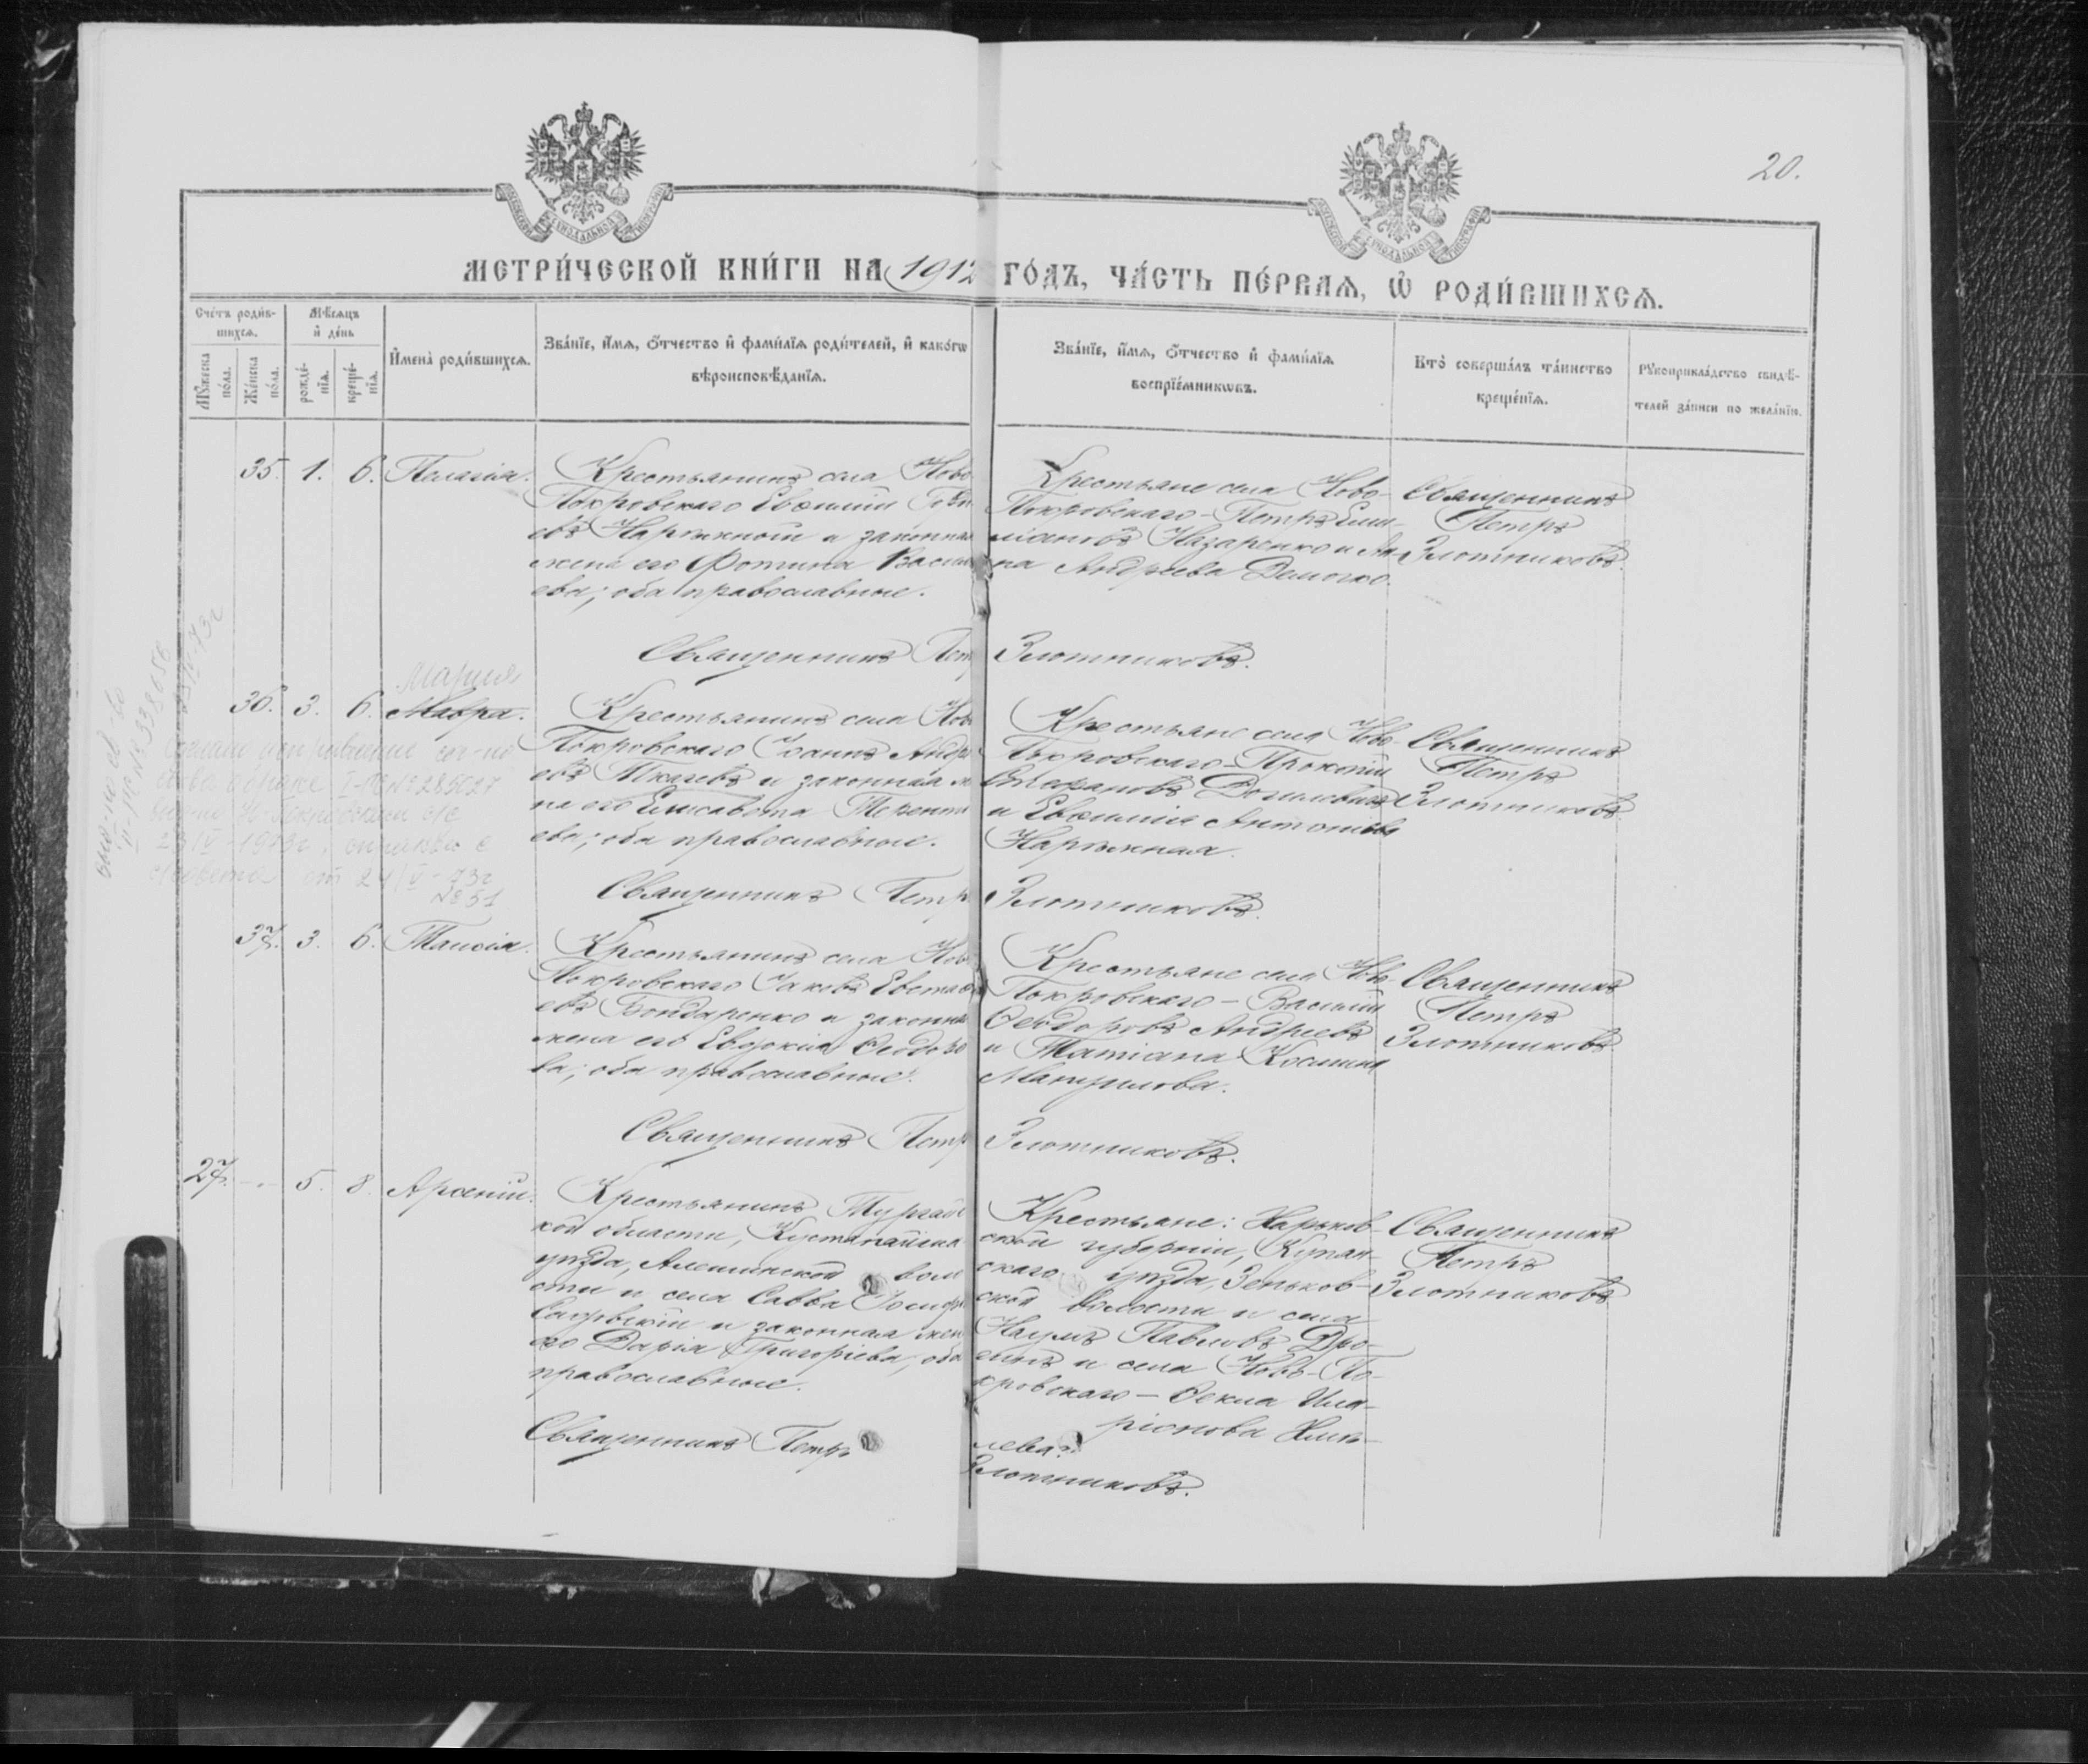 20.
МЕТРИ́ЧЕСКОЙ КНИ́ГИ НА 1912 ГО́ДЪ, ЧА́СТЬ ПЕ́РВАѦ, Ѡ҆ РОДИ́ВШИХСѦ.
Сче́тъ роди́в-
шихсѧ.
Мѣ́сяцъ
и҆ де́нь
Мꙋ́жеска
по́ла.
Же́нска
по́ла.
рожде́-
нїѧ.
креще́-
нїѧ.
И҆мена̀ роди́вшихсѧ.
Зва́нїе, и҆́мѧ, ѻ҆́тчество и҆ фами́лїѧ роди́телей, и҆ како́гѡ
вѣроисповѣ́данїѧ.
Зва́нїе, и҆́мѧ, ѻ҆́тчество и҆ фами́лїѧ
воспрїе́мникѡвъ.
Кто̀ соверша́лъ та́инство
креще́нїѧ.
Рꙋкоприкла́дство свидѣ́-
телей за́писи по жела́нїю.
35. 1. 6. Пелагія.
Крестьянинъ села Ново
Покровскаго Евѳимій
евъ Нарѣжной и законная
жена его Фотина Васи
ева; оба православные.
Крестьяне села Ново-
Покровскаго - Петръ Еми-
ліановъ Назаренко и Ан-
на Андреева
Священникъ
Петръ
Злотниковъ
Священникъ Петр Злотниковъ.
Мария
36. 3. 6. Мавра.
Крестьянинъ села Нов
Покровскаго Іоаннъ Андре
евъ Ткачевъ и законная ж
на его Елисавета Теренті
ева; оба православные.
Крестьяне села Ново-
Покровскаго - Прокопій
Стефановъ
и Евѳимія Антоніева
Нарѣжная.
Священникъ
Петръ
Злотниковъ
Священникъ Петр Злотниковъ.
37. 3. 6. Таисія.
Крестьянинъ села Нов
Покровскаго Іаковъ Евстаѳі
евъ Бондаренко и законна
жена его Евдокія Ѳеодоро
ва; оба православные.
Крестьяне села Ново-
Покровскаго - Василій
Ѳеодоровъ Андреевъ
и Татіана Косьмина
Священникъ
Петръ
Злотниковъ
Священникъ Петр Злотниковъ.
27. - 5. 8. Арсеній.
Крестьянинъ Тургай
кой области, Кустанайска
уѣзда, Алешинской воло
сти и села Савва Іосиф
и законная жен
его Дарія Григоріева; оба
православные.
Крестьяне: Харьков-
ской губерніи, Купян-
скаго уѣзда, Зеньков-
ской волости и села
Наумъ Павловъ Дро-
и села Ново-По-
кровскаго - Ѳекла Ила-
ріонова Хмѣ-
лева.
Священникъ
Петръ
Злотниковъ
Священникъ Петръ Злотниковъ.